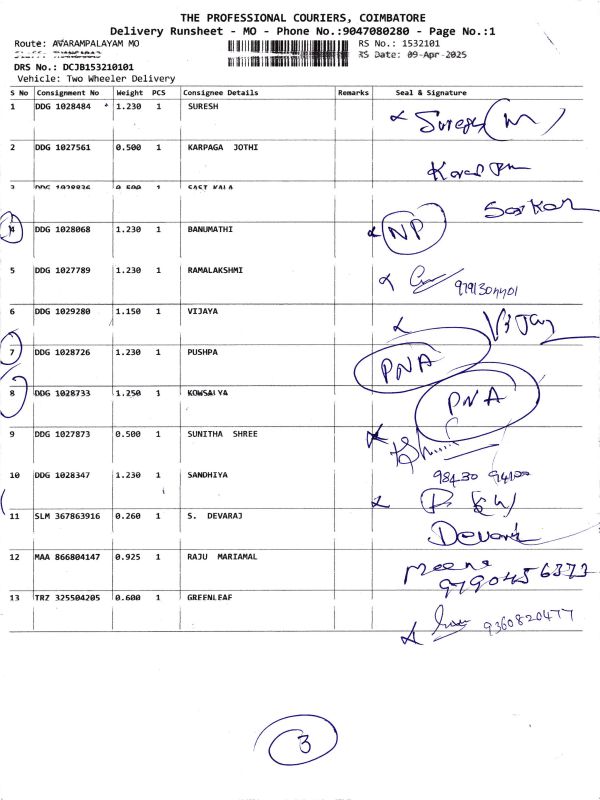 THE PROFESSIONAL COURIERS, COIMBATORE
Delivery Runsheet - MO - Phone No.:9047080280 - Page No.:1
Route: AVARAMPALAYAM MO RS No.: 1532101
RS Date: 09-Apr-2025
DRS No.: DCJB153210101
Vehicle: Two Wheeler Delivery
S No Consignment No Weight PCS Consignee Details Remarks Seal & Signature
1 DDG 1028484 1.230 1 SURESH
Suresh (M)
2 DDG 1027561 0.500 1 KARPAGA JOTHI
3 DDG 1028836 0.500 1 SASI KALA
4 DDG 1028068 1.230 1 BANUMATHI NP
5 DDG 1027789 1.230 1 RAMALAKSHMI
6 DDG 1029280 1.150 1 VIJAYA
Vijay
7 DDG 1028726 1.230 1 PUSHPA
PNA
8 DDG 1028733 1.250 1 KOWSALYA
PNA
9 DDG 1027873 0.500 1 SUNITHA SHREE
10 DDG 1028347 1.230 1 SANDHIYA
11 SLM 367863916 0.260 1 S. DEVARAJ
12 MAA 866804147 0.925 1 RAJU MARIAMAL
Meena
9790456373
13 TRZ 325504205 0.600 1 GREENLEAF
9360820477
3